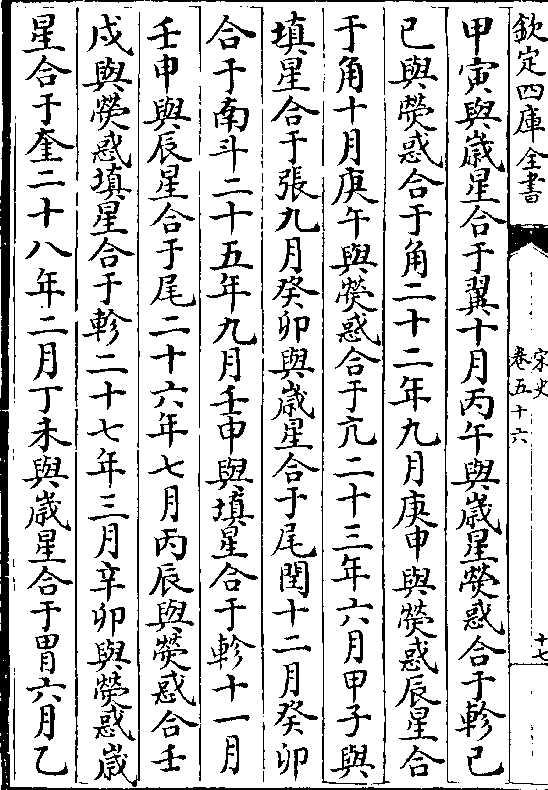 欽定四庫全書
宋史
卷五十六
十七
甲寅與歲星合于翼十月丙午與歲星熒惑合于軫己
巳與熒惑合于角二十二年九月庚申與熒惑辰星合
于角十月庚午與熒惑合于亢二十三年六月甲子與
填星合于張九月癸卯與歲星合于尾閏十二月癸卯
合于南斗二十五年九月壬申與填星合于軫十一月
壬申與辰星合于尾二十六年七月丙辰與熒惑合壬
戌與熒惑填星合于軫二十七年三月辛卯與熒惑歲
星合于奎二十八年二月丁未與歲星合于胃六月乙